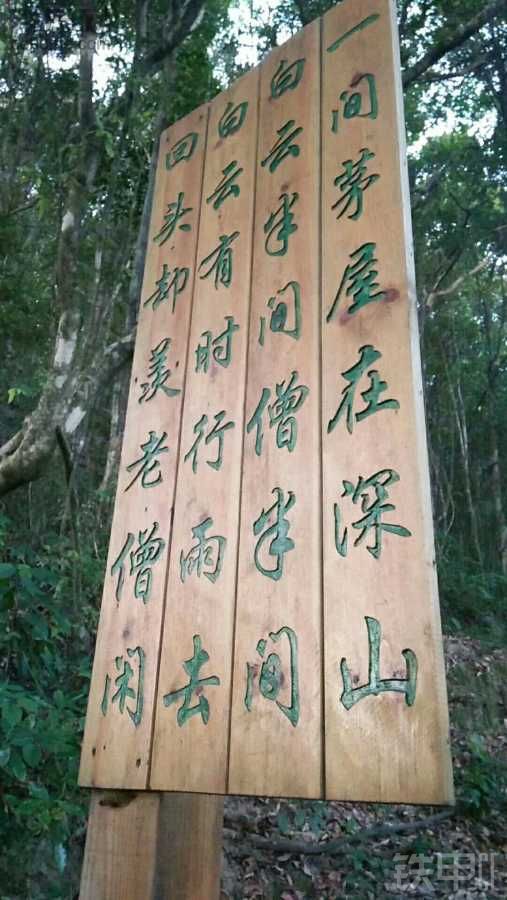 一间茅屋在深山
白云半间僧半间
白云有时行雨去
回头却羡老僧闲
铁甲